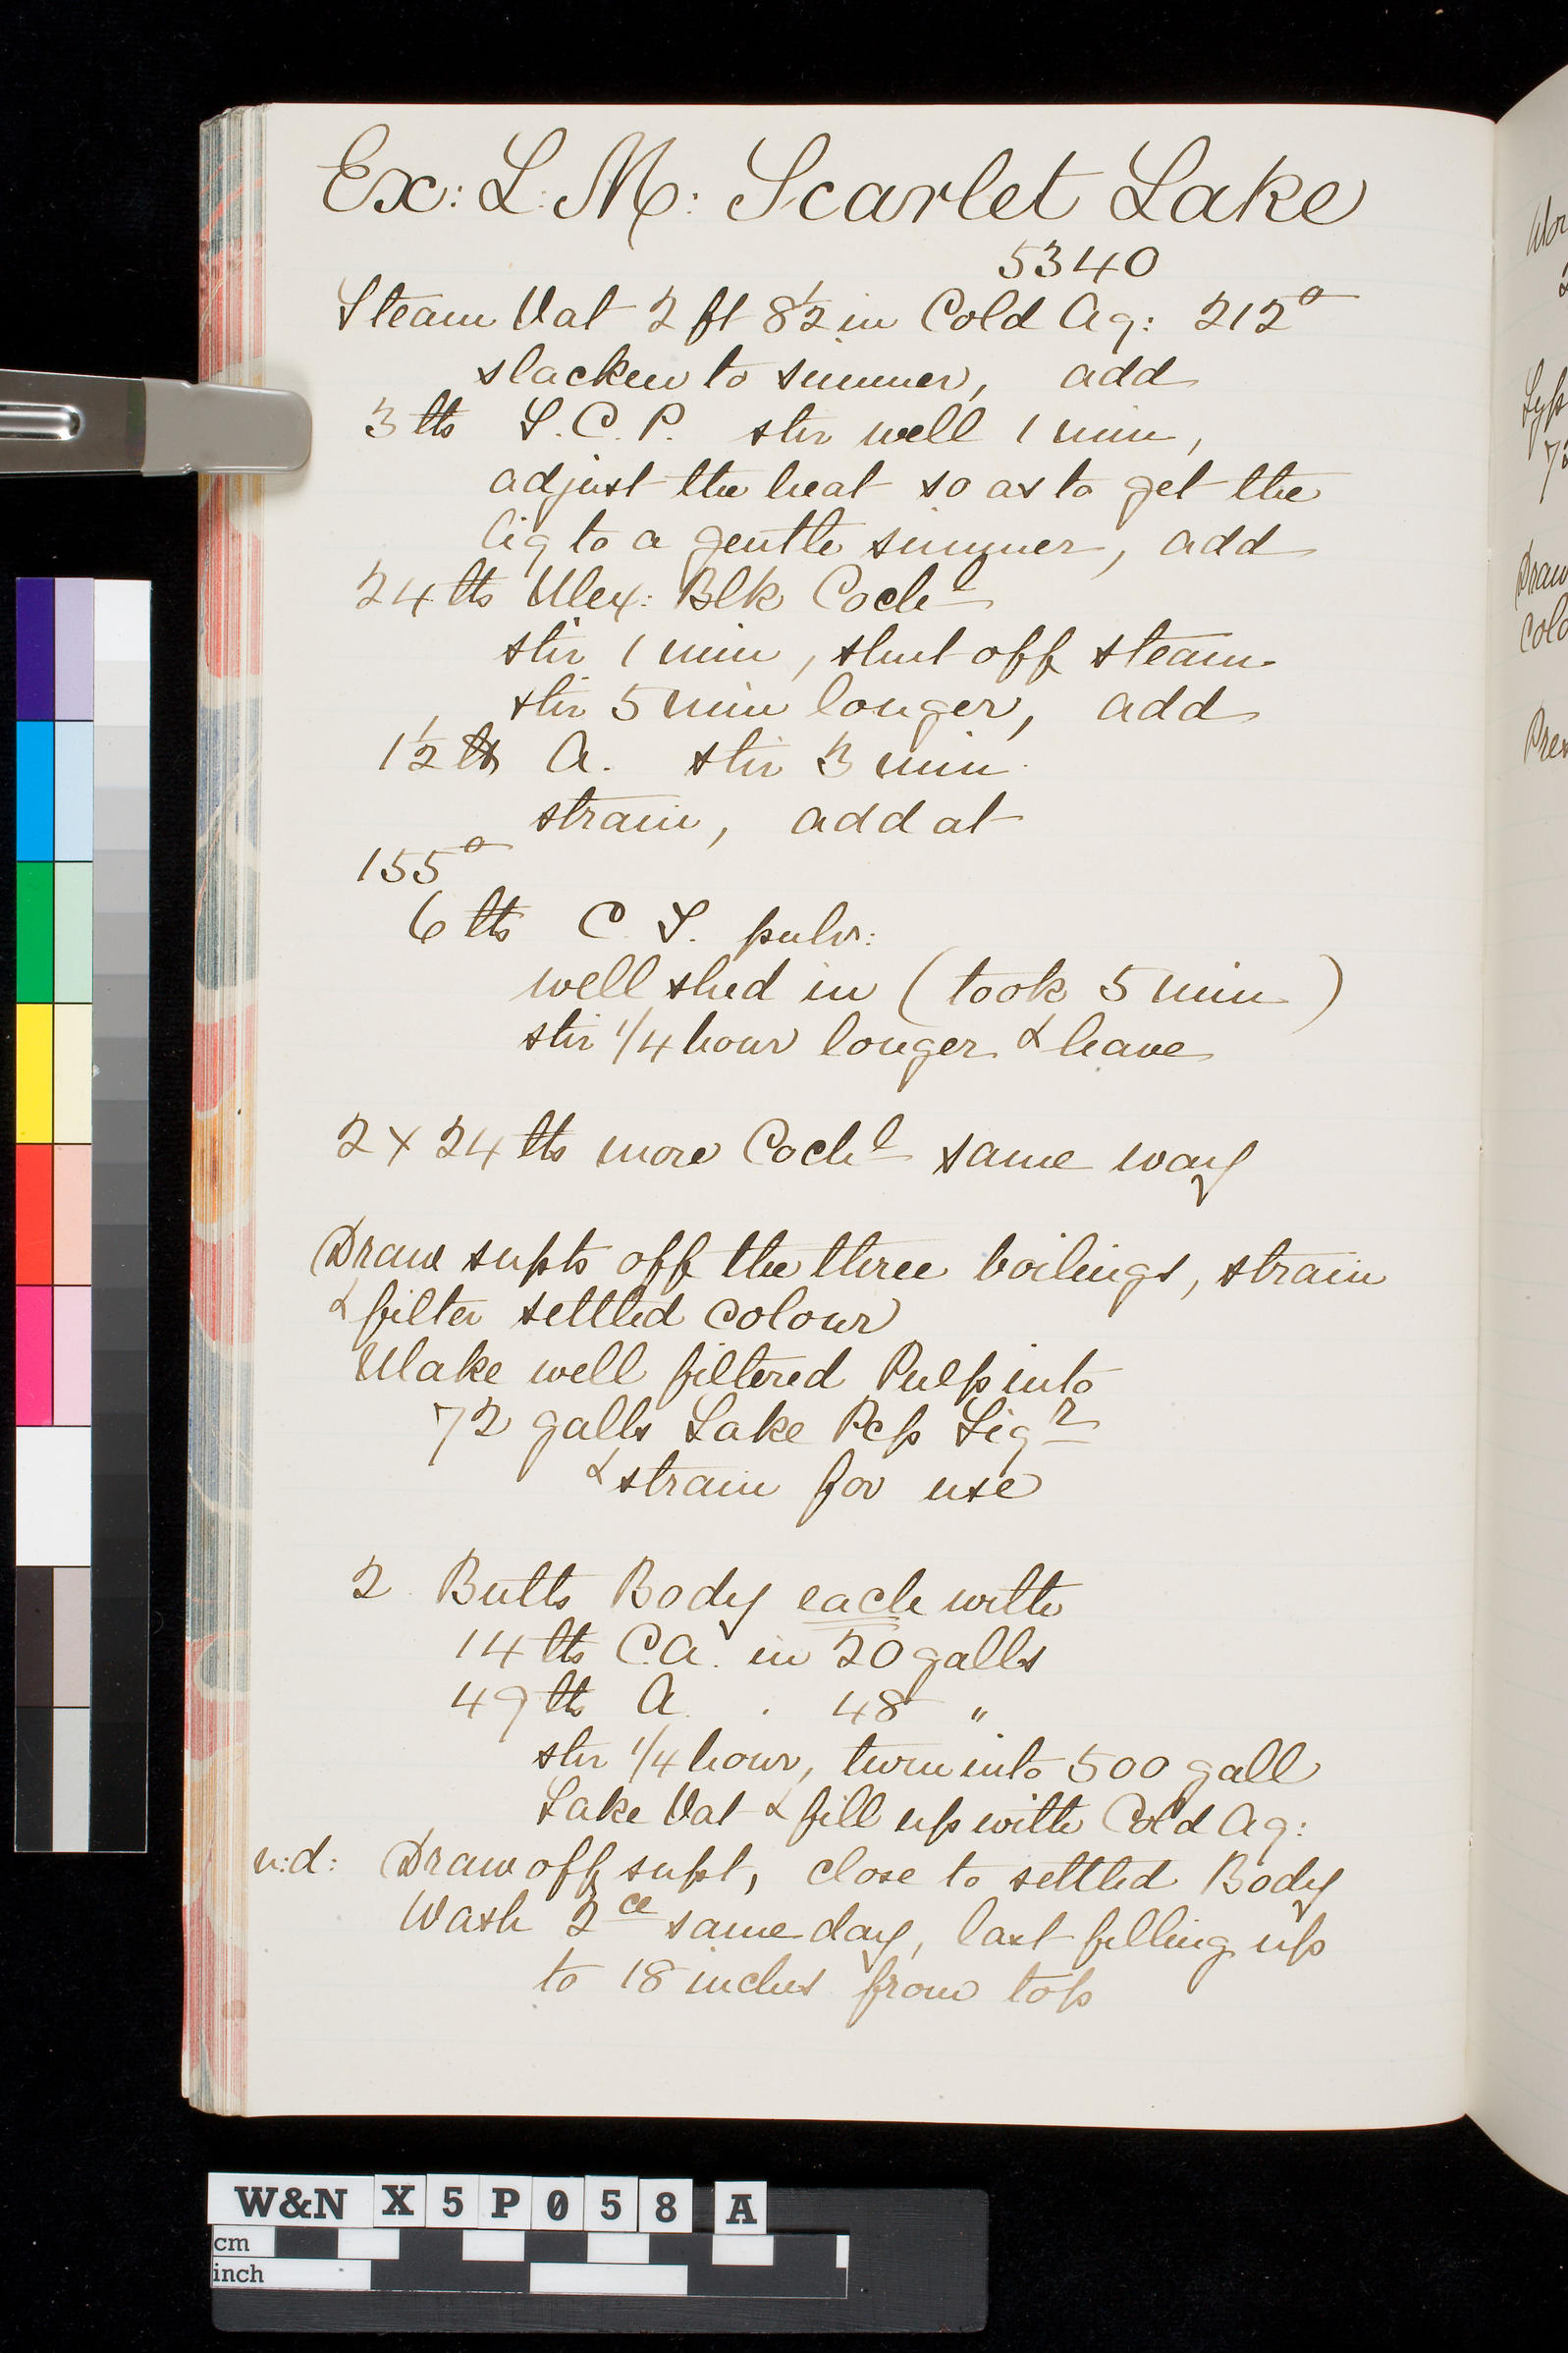 Ex: L: M: Scarlet Lake
5340
Steam Vat 2 ft 8½ in Cold Aq: 212°
slacken to simmer, add
3 lbs S.C.P. stir well 1 min,
adjust the heat so as to get the
liq to a gentle simmer, add
24 lbs Mex: Blk Cochl
stir 1 min, shut off steam
stir 5 min longer, add
1½ lbs A. stir 3 min.
strain, add at
155°
6 lbs C. S. pulv:
well shed in (took 5 min)
stir 1/4 hour longer & leave
2 x 24 lbs more Cochl same way
Draw supts off the three boilings, strain
& filter settled colour
Make well filtered Pulp into
72 galls Lake Pcp Liqr
& strain for use
2 Butts Body each with
14 lbs C.A. in 20 galls
49 lbs A. . 48 "
stir 1/4 hour, turn into 500 gall
Lake Vat & fill up with Cold Aq:
n:d: Draw off supt, close to settled Body
Wash 2ce same day, last filling up
to 18 inches from top
W&N X 5 P 0 5 8 A
cm
inch